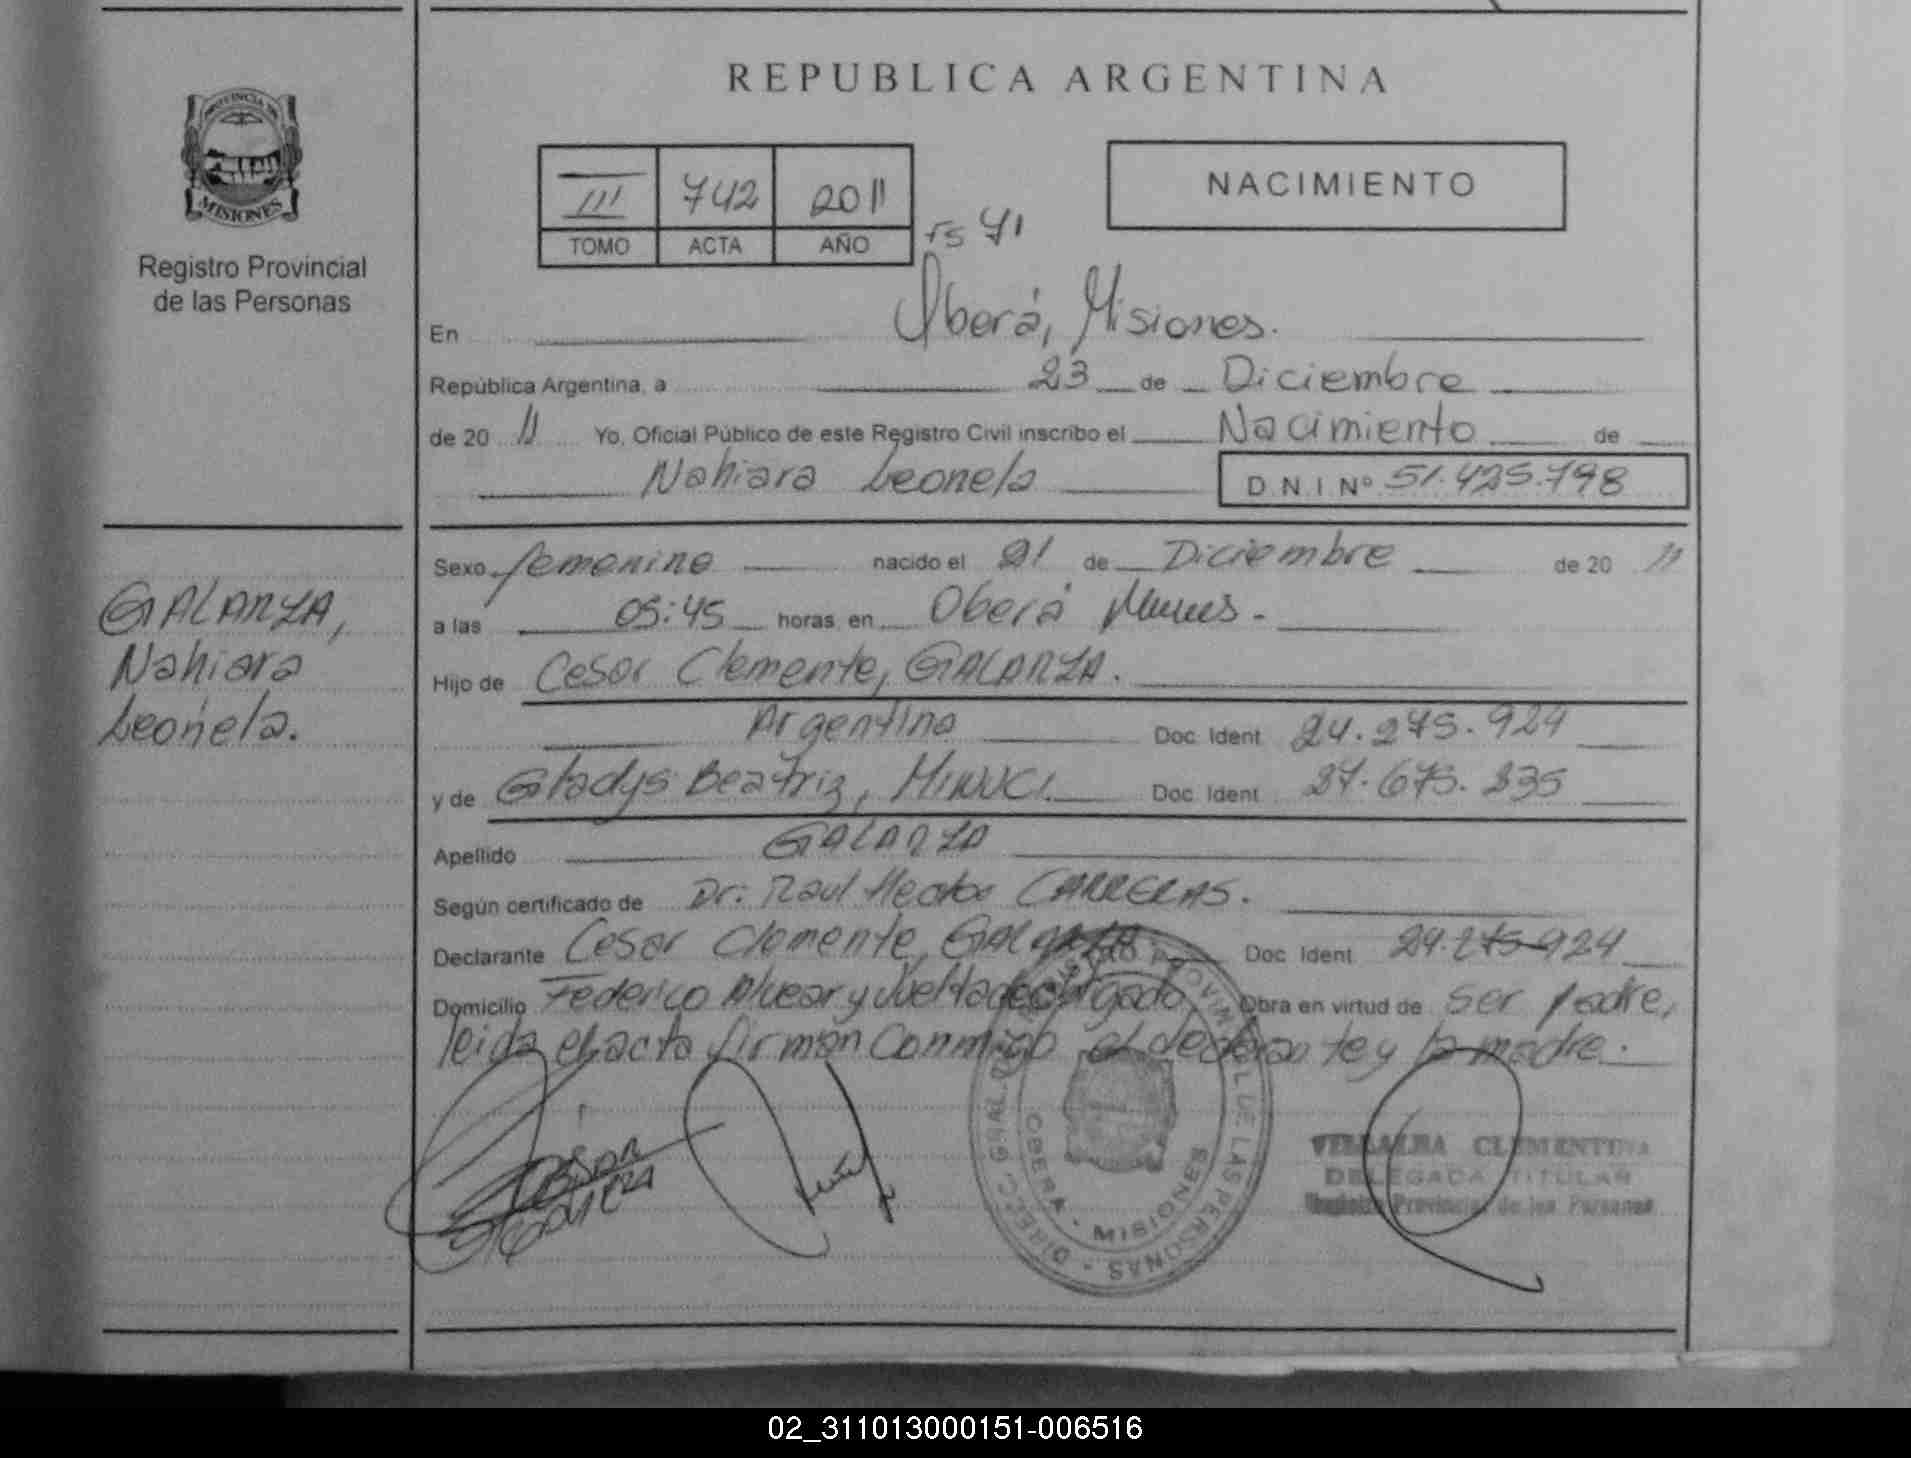 REPUBLICA ARGENTINA
PROVINCIA DE
MISIONES
Registro Provincial
de las Personas
III 742 2011
TOMO ACTA AÑO
Fs 71
NACIMIENTO
En Oberá, Misiones.
República Argentina, a 23 de Diciembre
de 20 11 Yo, Oficial Público de este Registro Civil inscribo el Nacimiento de
Nahiara Leonela D.N.I Nº 51.425.798
GALARZA,
Nahiara
Leonela.
Sexo femenino nacido el 21 de Diciembre de 20 11
a las 05:45 horas en Oberá
Hijo de Cesar Clemente, GALARZA.
Argentina Doc. Ident. 24.275.924
y de Gladys Beatriz, MINUCI. Doc. Ident. 27.675.235
Apellido GALARZA
Según certificado de Dr: Raul Hector CARRERAS.
Declarante Cesar Clemente, GALARZA Doc. Ident. 24.275.924
Domicilio Federico Alvear y Vuelta de Obligado Obra en virtud de ser padre,
leida el acta firman conmigo el declarante y la madre.
CESAR
GALARZA
DIREC. GRAL. DEL REGISTRO PROVINCIAL DE LAS PERSONAS
OBERA - MISIONES
VILLALBA CLEMENTINA
DELEGADA TITULAR
Registro Provincial de las Personas
02_311013000151-006516